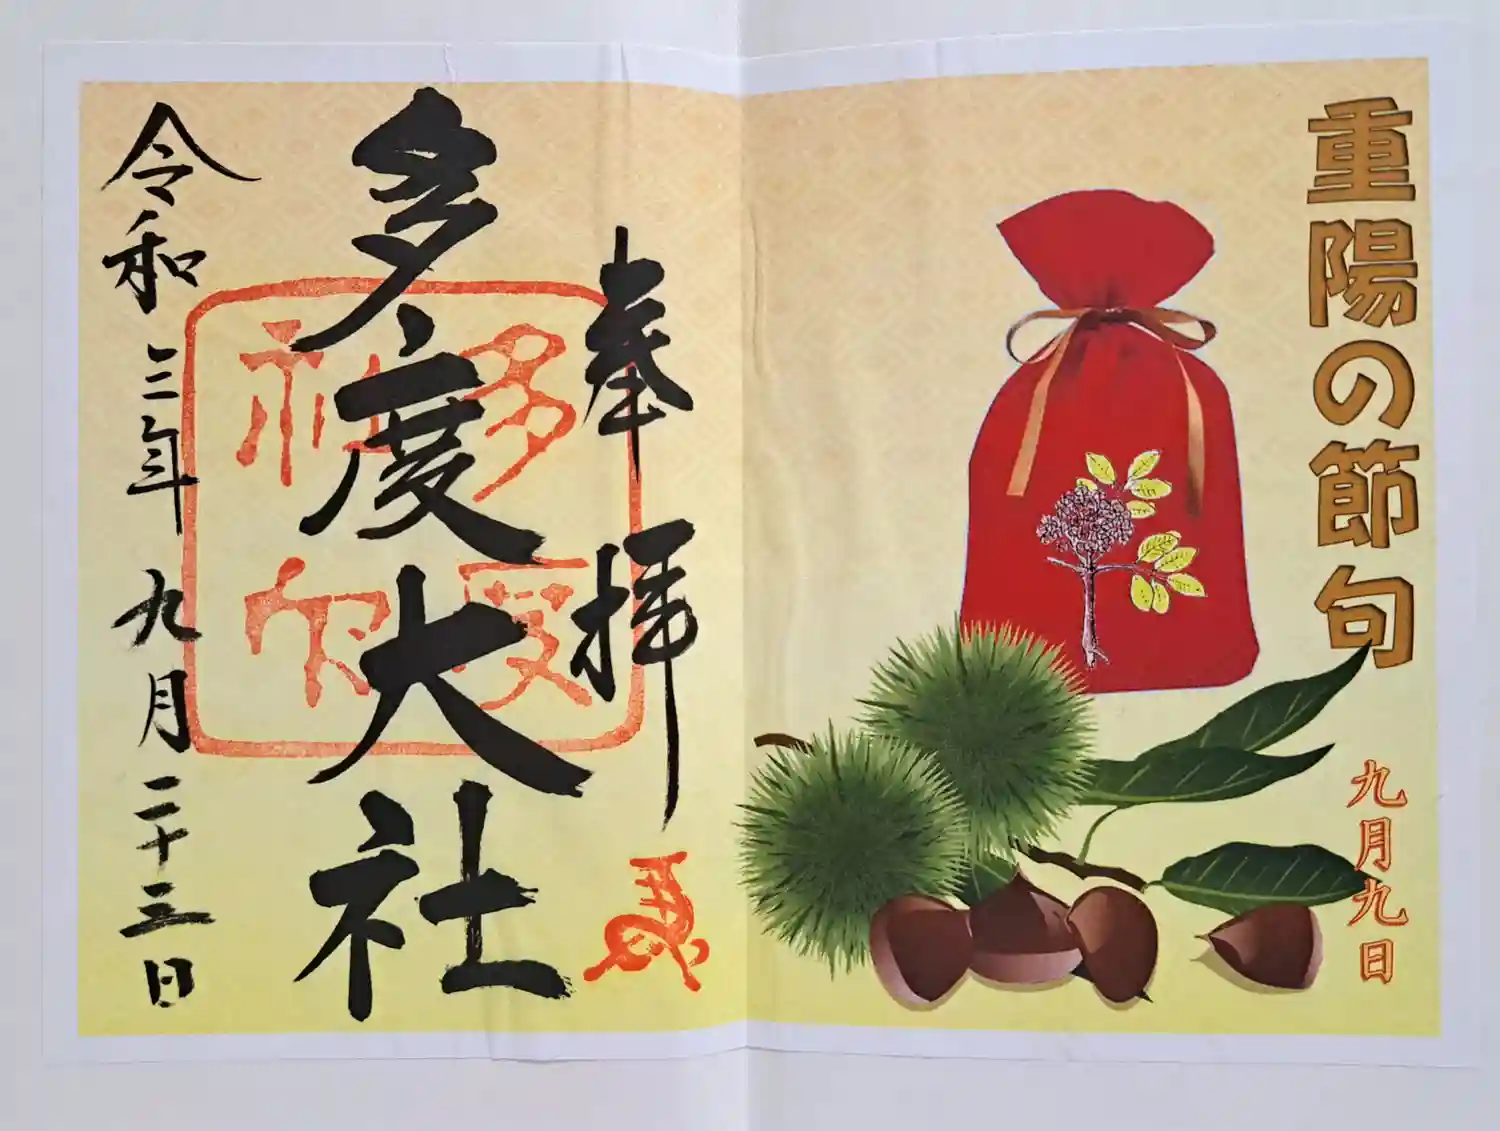 重陽の節句
九月九日
奉拝
多度大社
令和三年九月二十三日